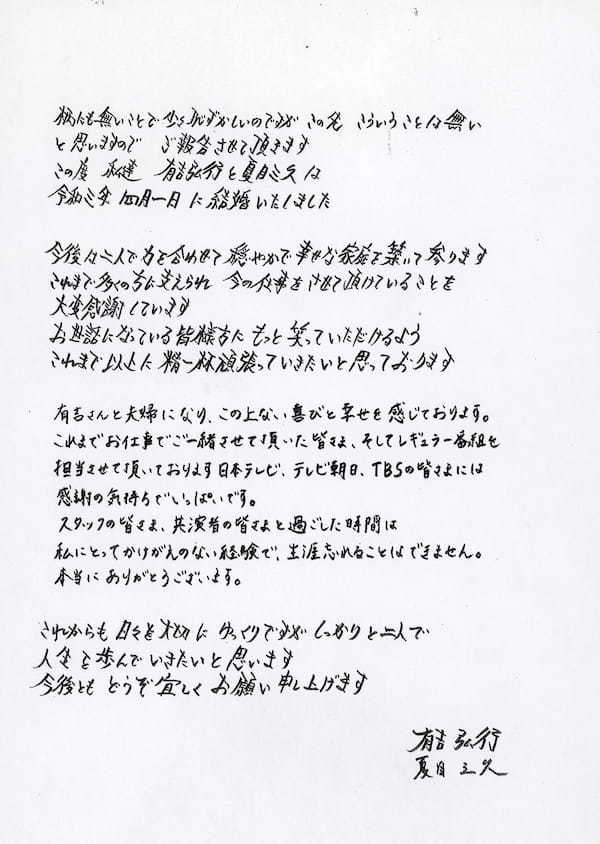 柄にも無いことで少々恥ずかしいのですが この先 こういうことは無い
と思いますので ご報告させて頂きます
この度 私達 有吉弘行と夏目三久は
令和三年 四月一日 に 結婚いたしました
今後々二人で力を合わせて 穏やかで幸せな家庭を築いて参ります
これまで多くの方に支えられ 今の仕事をさせて頂けていることを
大変感謝しています
お世話になっている皆様方に もっと笑っていただけるよう
これまで以上に 精一杯頑張っていきたいと思っております
有吉さんと夫婦になり、この上ない喜びと幸せを感じております。
これまでお仕事でご一緒させて頂いた皆さま、そしてレギュラー番組を
担当させて頂いております日本テレビ、テレビ朝日、TBSの皆さまには
感謝の気持ちでいっぱいです。
スタッフの皆さま、共演者の皆さまと過ごした時間は
私にとってかけがえのない経験で、生涯忘れることはできません。
本当にありがとうございます。
これからも 日々を大切に ゆっくりですが しっかりと二人で
人生を歩んでいきたいと思います
今後とも どうぞ宜しく お願い申し上げます
有吉弘行
夏目三久